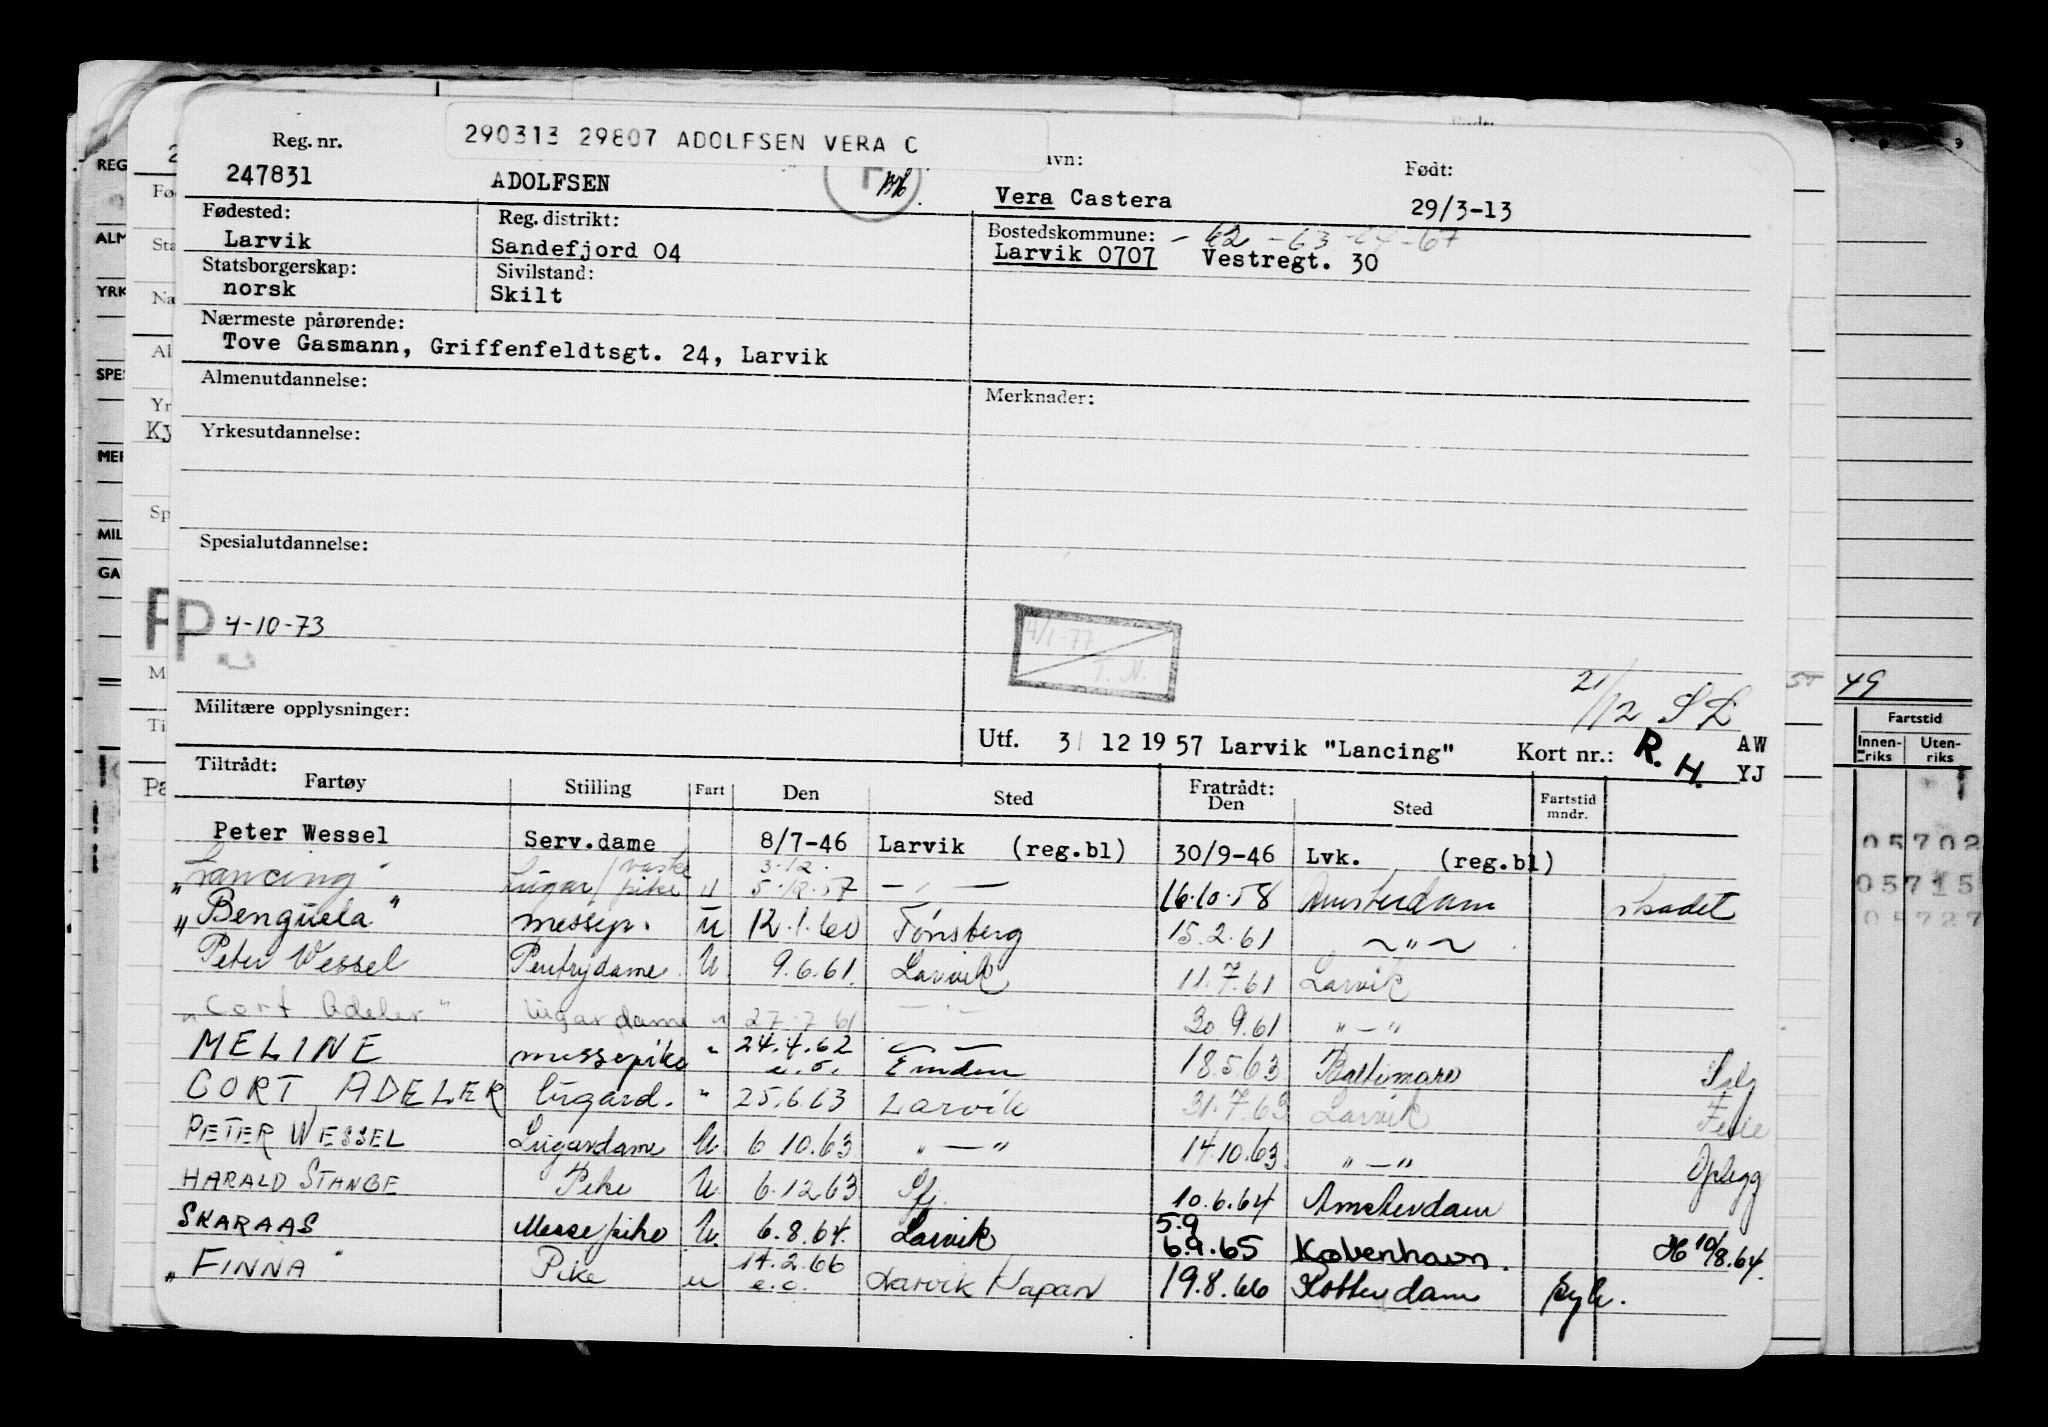 290313 29807 ADOLFSEN VERA C
Reg. nr. avn: Født:
247831 ADOLFSEN Vera Castera 29/3-13
Fødested: Reg. distrikt: Bostedskommune: - 62 - 63 - 64 - 67
Larvik Sandefjord 04 Larvik 0707 Vestregt. 30
Statsborgerskap: Sivilstand:
norsk Skilt
Nærmeste pårørende:
Tove Gasmann, Griffenfeldtsgt. 24, Larvik
Almenutdannelse: Merknader:
Yrkesutdannelse:
Spesialutdannelse:
P 4-10-73
4/1-77
T. N.
21/12 SL
Militære opplysninger:
Utf. 3/ 12 1957 Larvik "Lancing" Kort nr.: R. H. AW
YJ
Tiltrådt: Fratrådt:
Fartøy Stilling Fart Den Sted Den Sted Fartstid mndr.
Peter Wessel Serv.dame 8/7-46 Larvik (reg.bl) 30/9-46 Lvk. (reg.bl)
3.12.
"Lancing" Lugar/vaske pike u 5.12.57 — " — 16.10.58 Amsterdam skadet
"Benguela" messep. u 12.1.60 Tønsberg 15.2.61 ~ " ~
Peter Wessel Pentrydame U 9.6.61. Larvik 11.7.61 Larvik
"Cort Adeler" lugardame " 27-7 61 — " — 30 9.61 " — "
MELINE messepike " 24.4.62 e.o. Emden 18.5.63 Baltimore Salg
CORT ADELER lugard. " 25.6.63 Larvik 31.7.63 Larvik Ferie
PETER WESSEL Lugardame U 6 10.63 " — " 14.10.63 " — " Oplegg
HARALD STANGE Pike U. 6.12.63 Sfj. 10.6.64 Amsterdam
5.9
SKARAAS Messepike U. 6.8.64. Larvik 6.9.65 København. 10/8.64.
"FINNA" Pike u 14.2.66 e.o. Larvik/Japan 19.8.66 Rotterdam syk.
REG
ALM
YRK
SPES
MER
MIL
GA
Fø
Sta
Næ
Al
Yr
Ky
Sp
M
Ti
Pa
49
Fartstid
Innen-riks Uten-riks
05702
05715
05727